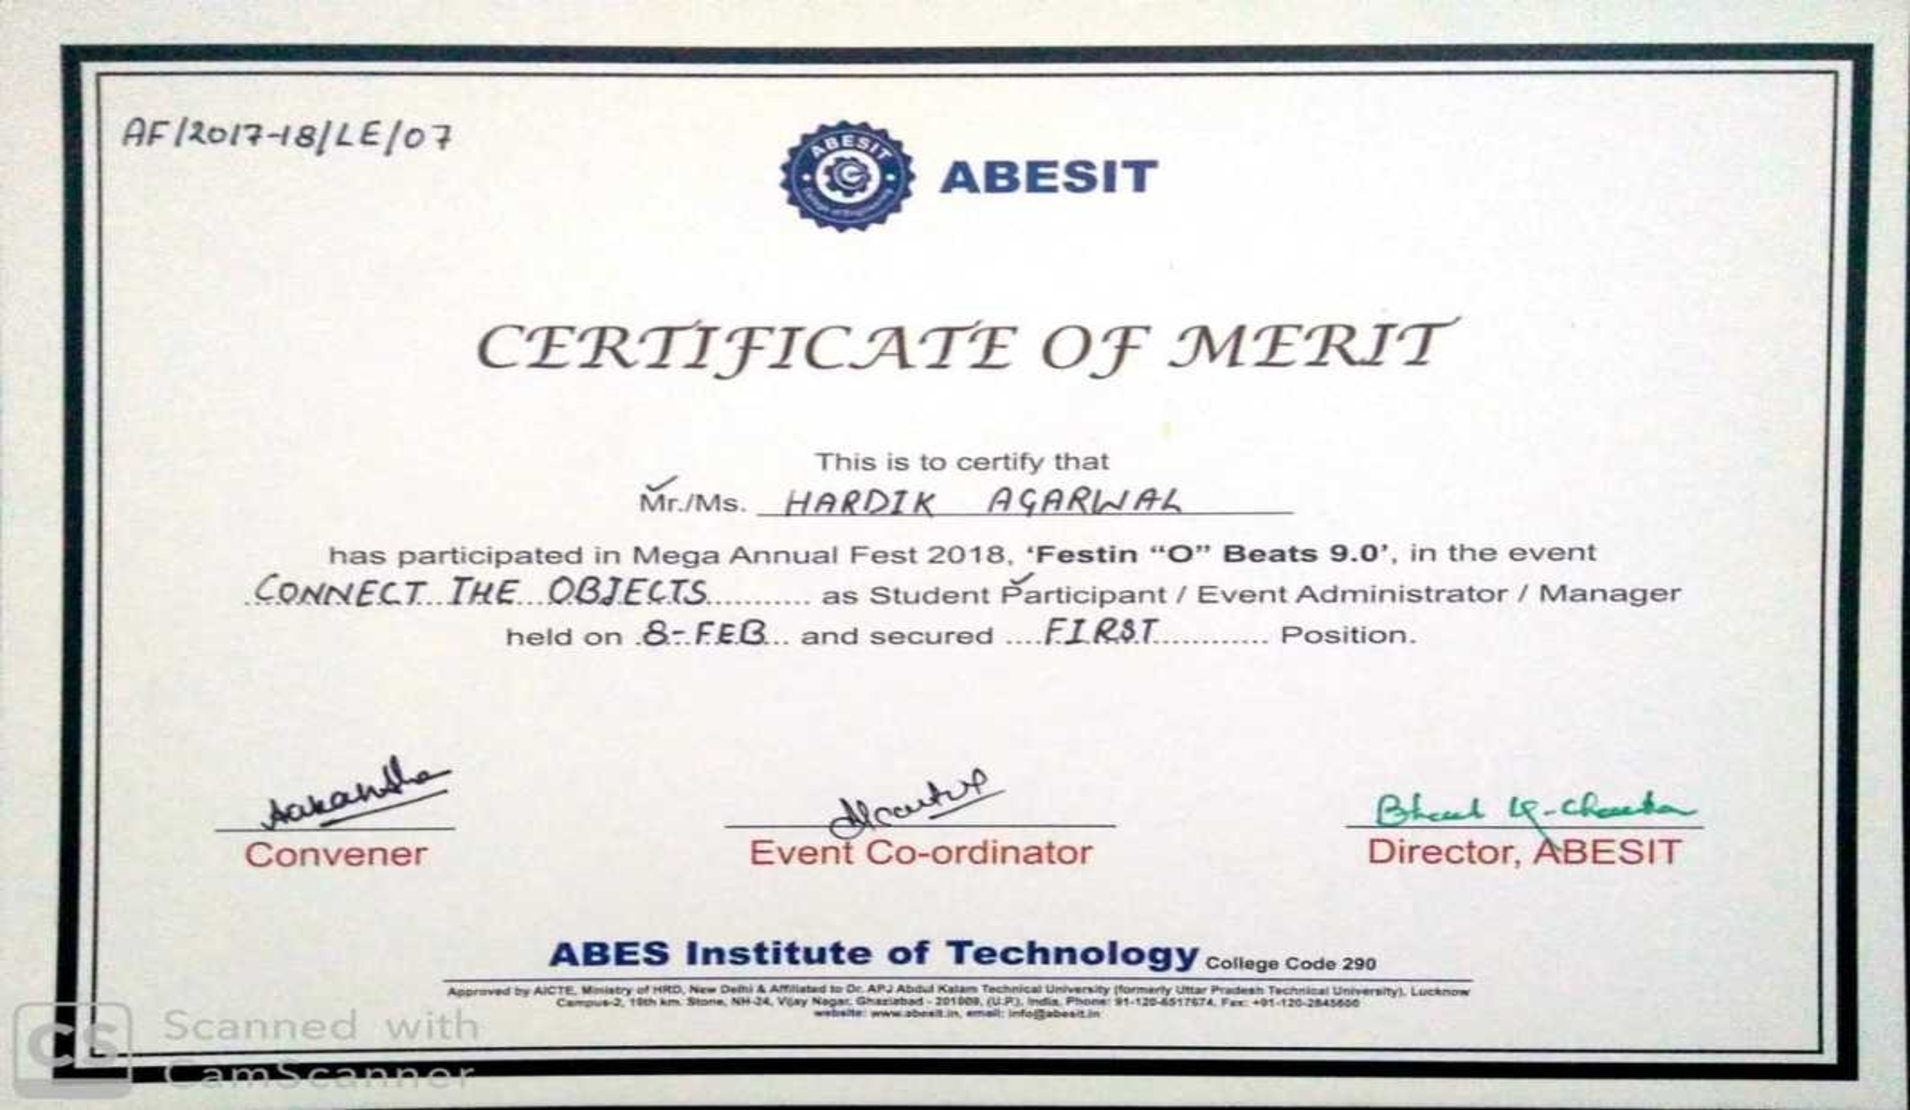 AF/2017-18/LE/07
ABESIT
ABESIT
CERTIFICATE OF MERIT
This is to certify that
Mr./Ms. HARDIK AGARWAL
has participated in Mega Annual Fest 2018, ‘Festin “O” Beats 9.0’, in the event
CONNECT THE OBJECTS as Student Participant / Event Administrator / Manager
held on 8-FEB and secured FIRST Position.
Aakanksha
Bharat Kr. Chauhan
Convener
Event Co-ordinator
Director, ABESIT
ABES Institute of Technology College Code 290
Approved by AICTE, Ministry of HRD, New Delhi & Affiliated to Dr. APJ Abdul Kalam Technical University (formerly Uttar Pradesh Technical University), Lucknow
Campus-2, 19th km. Stone, NH-24, Vijay Nagar, Ghaziabad - 201009, (U.P.), India, Phone: 91-120-6517674, Fax: +91-120-2845600
website: www.abesit.in, email: info@abesit.in
CS Scanned with
CamScanner